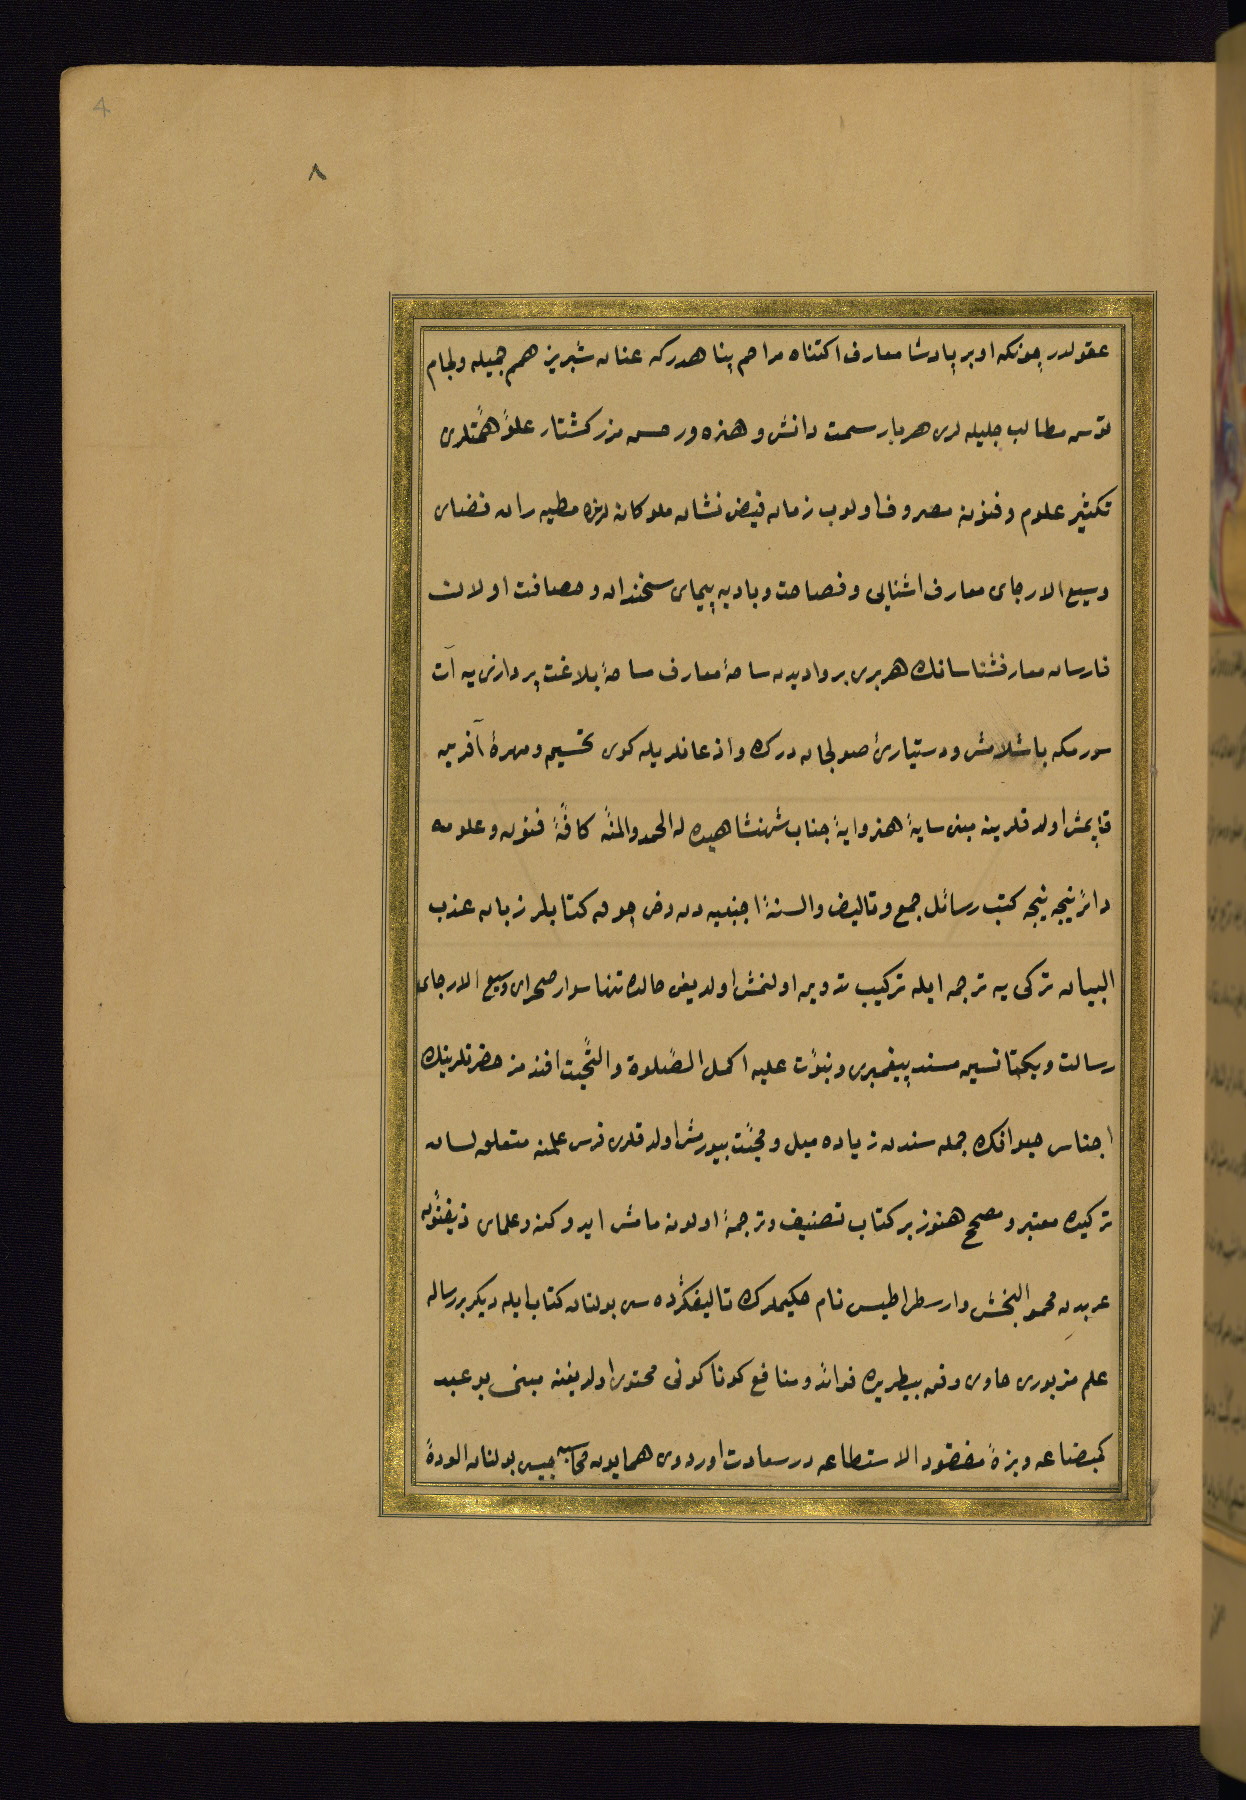 4
٨
عقولدر چونكه او بر پادشا معارف اكتناه مراحم پنا هدر كه عنان شبريز همم جميله ولجام
توسن مطالب جليله لرى هر بار سمت دانش و هنره ور حسن مزركشتار علوّ همّتلرى
تكثير علوم و فنونه مصروف اولوب زمان فيض نشان ملوكانه لرنده مطيه ران فضاى
وسيع الارجاى معارف اشنايى و فصاحت و باديه پيماى سخندان و حصافت اولان
فارسان معارفشناسانك هر برى بر واديدن ساحهٔ معارف مساحهٔ بلاغت پردازى يه آت
سورمكه باشلامش و دستيارئ صولجان درك و اذعانلريله كوى تحسين و مهرهٔ آفرين
قاپمش اولدقلرينه مبنى سايهٔ هنروايهٔ جناب شهنشاهيده له الحمد والمنّه كافّهٔ فنون و علومه
دائر نيجه نيجه كتب رسائل جمع و تاليف والسنهٔ اجنبيه دن دخى چوق كتابلر زبان عذب
البيان تركى يه ترجمه ايله تركيب تدوين اولنمش اولديغى حالده تنها سوار صحراى وسيع الارجاى
رسالت و يكتا نشين مسند پيغمبرى و نبوّت عليه اكمل الصّلوة والتّحيّت افندمز حضرتلرينك
اجناس حيوانك جمله سندن زياده ميل و محبّت بيورمش اولدقلرى فرس علمنه متعلق لسان
تركيده معتبر و مصحح هنوز بر كتاب تصنيف و ترجمهٔ اولونه مامش ايدوكنه و علماى ذيفنّون
عربدن محمو البخشى وارسطراطيس نام حكيملرك تاليفكرده سى بولنان كتاب ايله ديكر بر رساله
علم مزبورى حاوى و فن بيطريده فوائد و منافع كوناكونى محتوى اولديغنه مبنى بو عبد
كمبضاعه و بزهٔ مفقود الاستطاعه در سعادت اوردوى همايون محاسبه جيسى بولنان الودهٔ